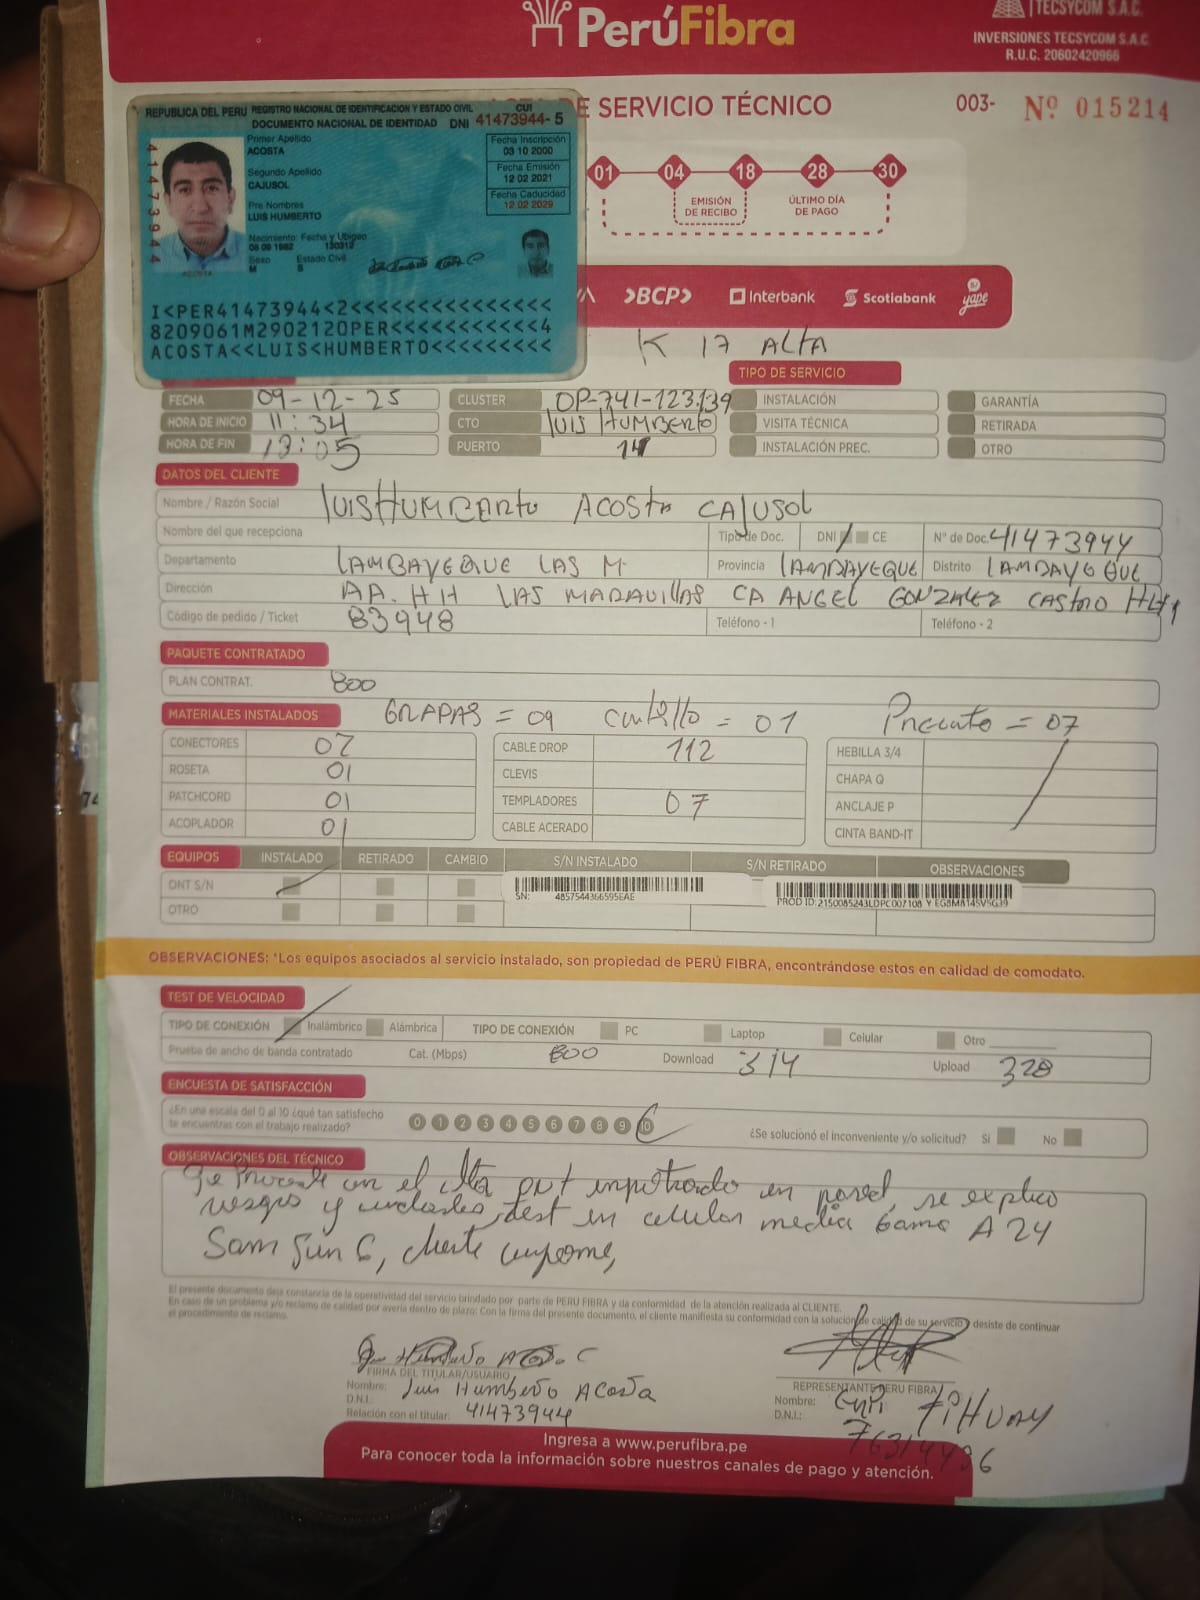 PerúFibra
TECSYCOM S.A.C.
INVERSIONES TECSYCOM S.A.C
R.U.C. 20602420966
DE SERVICIO TÉCNICO
003- Nº 015214
REPUBLICA DEL PERU REGISTRO NACIONAL DE IDENTIFICACION Y ESTADO CIVIL
DOCUMENTO NACIONAL DE IDENTIDAD DNI
CUI
41473944-5
Primer Apellido
ACOSTA
Segundo Apellido
CAJUSOL
Pre Nombres
LUIS HUMBERTO
Nacimiento: Fecha y Ubigeo
06 09 1982 130312
Sexo Estado Civil
M S
Fecha Inscripción
03 10 2000
Fecha Emisión
12 02 2021
Fecha Caducidad
12 02 2029
41473944
ACOSTA
I<PER41473944<2<<<<<<<<<<<<<<<
8209061M2902120PER<<<<<<<<<<<4
ACOSTA<<LUIS<HUMBERTO<<<<<<<<<
01 04 18 28 30
EMISIÓN DE RECIBO
ÚLTIMO DÍA DE PAGO
>BCP> Interbank Scotiabank yape
K 17 ALTA
TIPO DE SERVICIO
FECHA 09-12-25 CLUSTER OP-741-123.139 INSTALACIÓN GARANTÍA
HORA DE INICIO 11:34 CTO LUIS HUMBERTO VISITA TÉCNICA RETIRADA
HORA DE FIN 13:05 PUERTO 14 INSTALACIÓN PREC. OTRO
DATOS DEL CLIENTE
Nombre / Razón Social LUIS HUMBERTO ACOSTA CAJUSOL
Nombre del que recepciona Tipo de Doc. DNI CE Nº de Doc. 41473944
Departamento LAMBAYEQUE LAS M. Provincia LAMBAYEQUE Distrito LAMBAYEQUE
Dirección AA.HH LAS MARAVILLAS CA ANGEL GONZALEZ CASTRO
Código de pedido / Ticket 83948 Teléfono - 1 Teléfono - 2
PAQUETE CONTRATADO
PLAN CONTRAT. 800
MATERIALES INSTALADOS GRAPAS = 09 = 01 Precinto = 07
CONECTORES 02 CABLE DROP 112 HEBILLA 3/4
ROSETA 01 CLEVIS CHAPA Q
PATCHCORD 01 TEMPLADORES 07 ANCLAJE P
ACOPLADOR 01 CABLE ACERADO CINTA BAND-IT
EQUIPOS INSTALADO RETIRADO CAMBIO S/N INSTALADO S/N RETIRADO OBSERVACIONES
ONT S/N
SN: 4857544366595EAE
PROD ID:2150085243LDPC007108 Y EG8M8145V5G39
OTRO
OBSERVACIONES: *Los equipos asociados al servicio instalado, son propiedad de PERÚ FIBRA, encontrándose estos en calidad de comodato.
TEST DE VELOCIDAD
TIPO DE CONEXIÓN Inalámbrico Alámbrica TIPO DE CONEXIÓN PC Laptop Celular Otro
Prueba de ancho de banda contratado Cat. (Mbps) 800 Download 314 Upload 328
ENCUESTA DE SATISFACCIÓN
¿En una escala del 0 al 10 ¿qué tan satisfecho
te encuentras con el trabajo realizado?
0 1 2 3 4 5 6 7 8 9 10
¿Se solucionó el inconveniente y/o solicitud? Si No
OBSERVACIONES DEL TÉCNICO
Se procede con el alta ont empotrado en pared, se explico
riesgos y cuidados, test en celular media gama A24
Samsung, cliente conforme,
El presente documento deja constancia de la operatividad del servicio brindado por parte de PERÚ FIBRA y da conformidad de la atención realizada al CLIENTE.
En caso de un problema y/o reclamo de calidad por avería dentro de plazo: Con la firma del presente documento, el cliente manifiesta su conformidad con la solución de calidad de su servicio y desiste de continuar
el procedimiento de reclamo.
FIRMA DEL TITULAR/USUARIO
Nombre: Luis Humberto Acosta
D.N.I.:
Relación con el titular: 41473944
REPRESENTANTE PERU FIBRA
Nombre:
D.N.I.: 76314496
Ingresa a www.perufibra.pe
Para conocer toda la información sobre nuestros canales de pago y atención.